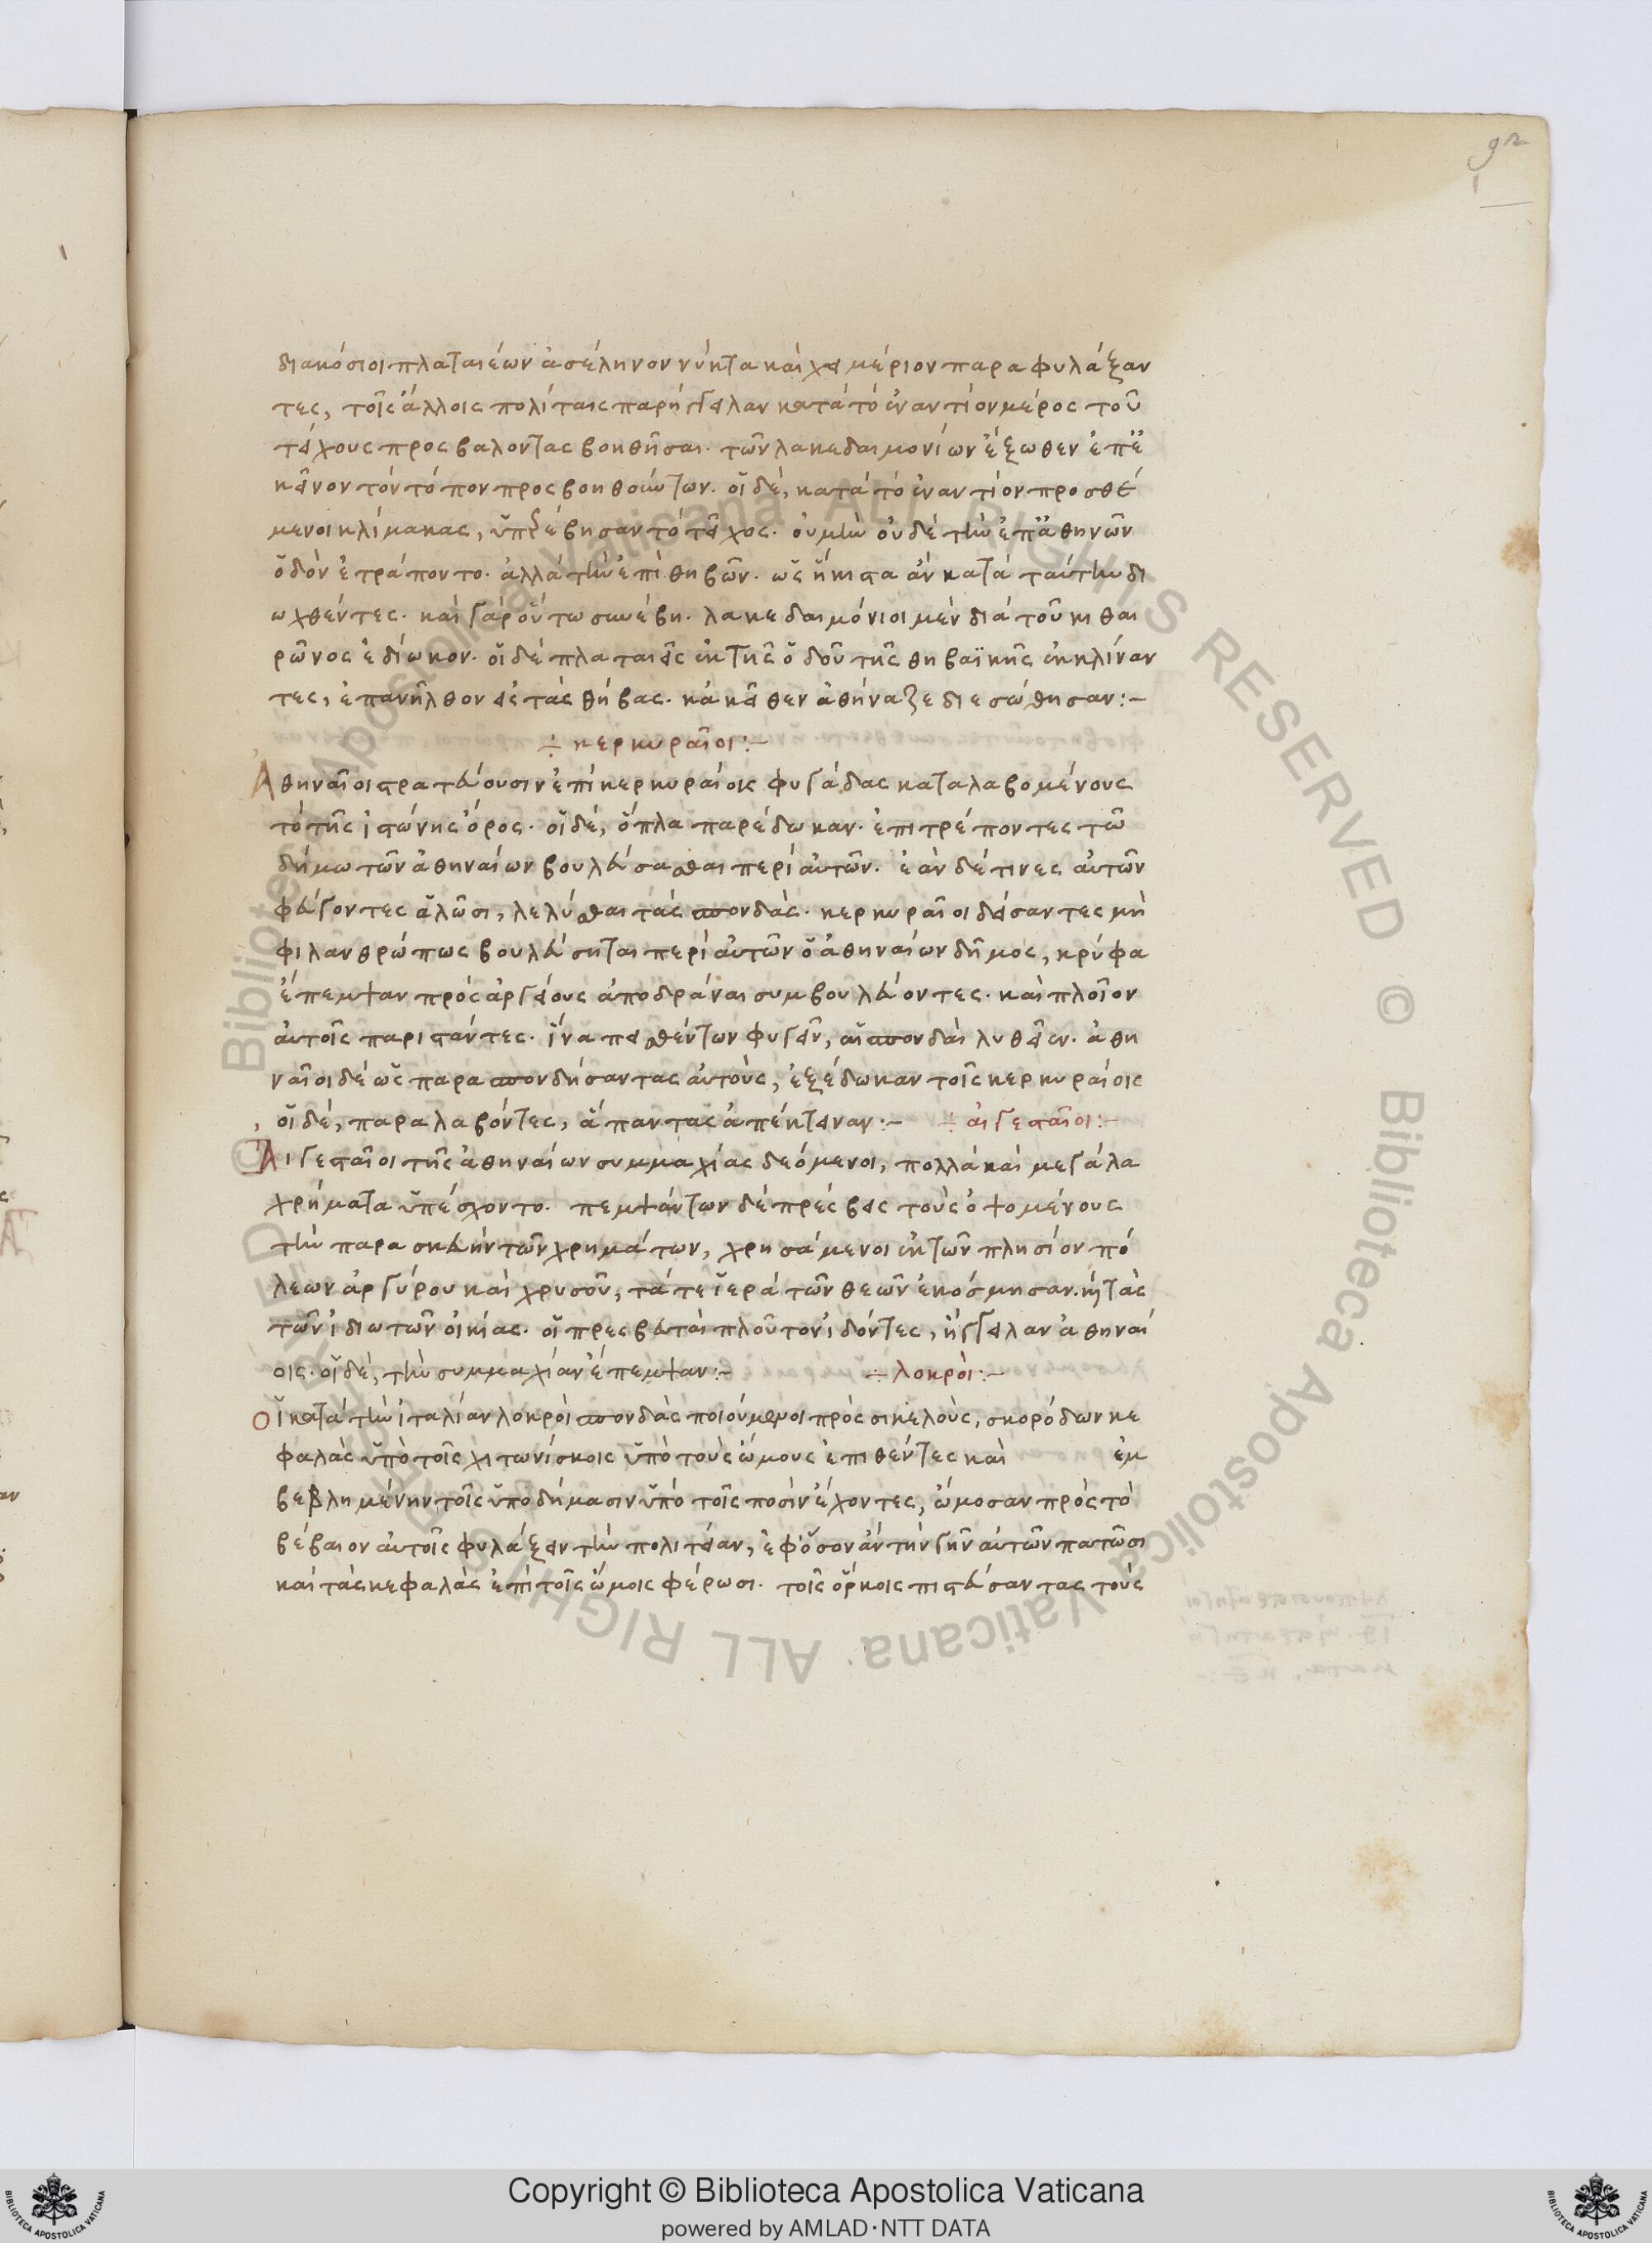 92
διακόσιοι πλαταιέων ἀσέληνον νύκτα καὶ χειμέριον παραφυλάξαν
τες, τοῖς ἄλλοις πολίταις παρήγγειλαν κατὰ τὸ ἐναντίον μέρος τοῦ
τείχους προσβαλοντας βοηθῆσαι. τῶν λακεδαιμονίων ἔξωθεν ἐπ' ἐ
κεῖνον τὸν τόπον προσβοηθούντων. οἱ δὲ, κατὰ τὸ ἐναντίον προσθέ
μενοι κλίμακας, ὑπερέβησαν τὸ τεῖχος. οὐ μὴν οὐδὲ τὴν ἐπ' ἀθηνῶν
ὁδὸν ἐτράποντο. ἀλλὰ τὴν ἐπὶ θηβῶν. ὡς ἥκιστα ἂν κατὰ ταύτην δι
ωχθέντες. καὶ γὰρ οὕτω συνέβη. λακεδαιμόνιοι μὲν διὰ τοῦ κιθαι
ρῶνος ἐδίωκον. οἱ δὲ πλαταιεῖς ἐκ τῆς ὁδοῦ τῆς θηβαϊκῆς ἐκκλίναν
τες, ἐπανῆλθον εἰς τὰς θήβας. κἀκεῖθεν ἀθήναζε διεσώθησαν:-
÷ κερκυραῖοι:-
Ἀθηναῖοι στρατεύουσιν ἐπὶ κερκυραίοις φυγάδας καταλαβομένους
τὸ τῆς ἰστώνης ὄρος. οἱ δὲ, ὅπλα παρέδωκαν. ἐπιτρέποντες τῶ
δήμω τῶν ἀθηναίων βουλεύσασθαι περὶ αὐτῶν. ἐὰν δέ τινες αὐτῶν
φεύγοντες ἁλῶσι, λελύσθαι τὰς σπονδάς. κερκυραῖοι δείσαντες μὴ
φιλανθρώπως βουλεύσηται περὶ αὐτῶν ὁ ἀθηναίων δῆμος, κρύφα
ἔπεμψαν πρὸς ἀργείους ἀποδράναι συμβουλεύοντες. καὶ πλοῖον
αὐτοῖς παριστάντες. ἵνα πεισθέντων φυγεῖν, αἱ σπονδαὶ λυθεῖεν. ἀθη
ναῖοι δὲ ὡς παρασπονδήσαντας αὐτοὺς, ἐξέδωκαν τοῖς κερκυραίοις
οἱ δὲ, παραλαβόντες, ἅπαντας ἀπέκτειναν:- ÷ αἰγεσταῖοι:-
Αἰγεσταῖοι τῆς ἀθηναίων συμμαχίας δεόμενοι, πολλὰ καὶ μεγάλα
χρήματα ὑπέσχοντο. πεμψάντων δὲ πρέσβεις τοὺς ὀψομένους
τὴν παρασκευὴν τῶν χρημάτων, χρησάμενοι ἐκ τῶν πλησίον πό
λεων ἀργύρου καὶ χρυσοῦ, τά τε ἱερὰ τῶν θεῶν ἐκόσμησαν. καὶ τὰς
τῶν ἰδιωτῶν οἰκίας. οἱ πρεσβευταὶ πλοῦτον ἰδόντες, ἤγγειλαν ἀθηναί
οις. οἱ δὲ, τὴν συμμαχίαν ἔπεμψαν:- ÷ λοκροί:-
Οἱ κατὰ τὴν ἰταλίαν λοκροὶ σπονδὰς ποιούμενοι πρὸς σικελοὺς, σκορόδων κε
φαλὰς ὑπὸ τοῖς χιτωνίσκοις ὑπὸ τοὺς ὤμους ἐπιθέντες καὶ ἐμ
βεβλημένην τοῖς ὑποδήμασιν ὑπὸ τοῖς ποσὶν ἔχοντες, ὤμοσαν πρὸς τὸ
βέβαιον αὐτοῖς φυλάξειν τὴν πολιτείαν, ἐφ' ὅσον ἂν τὴν γῆν αὐτῶν πατῶσι
καὶ τὰς κεφαλὰς ἐπὶ τοῖς ὤμοις φέρωσι. τοῖς ὅρκοις πιστεύσαντας τοὺς
© Biblioteca Apostolica Vaticana. ALL RIGHTS RESERVED
© Biblioteca Apostolica Vaticana. ALL RIGHTS RESERVED
Copyright © Biblioteca Apostolica Vaticana
powered by AMLAD·NTT DATA
BIBLIOTECA APOSTOLICA VATICANA
BIBLIOTECA APOSTOLICA VATICANA